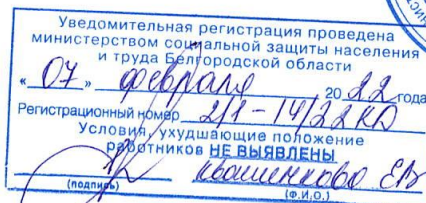 Уведомительная регистрация проведена
министерством социальной защиты населения
и труда Белгородской области
« 07 » февраля 2022 года
Регистрационный номер 2/1-14/22КД
Условия, ухудшающие положение
работников НЕ ВЫЯВЛЕНЫ
(подпись) (Ф.И.О.)